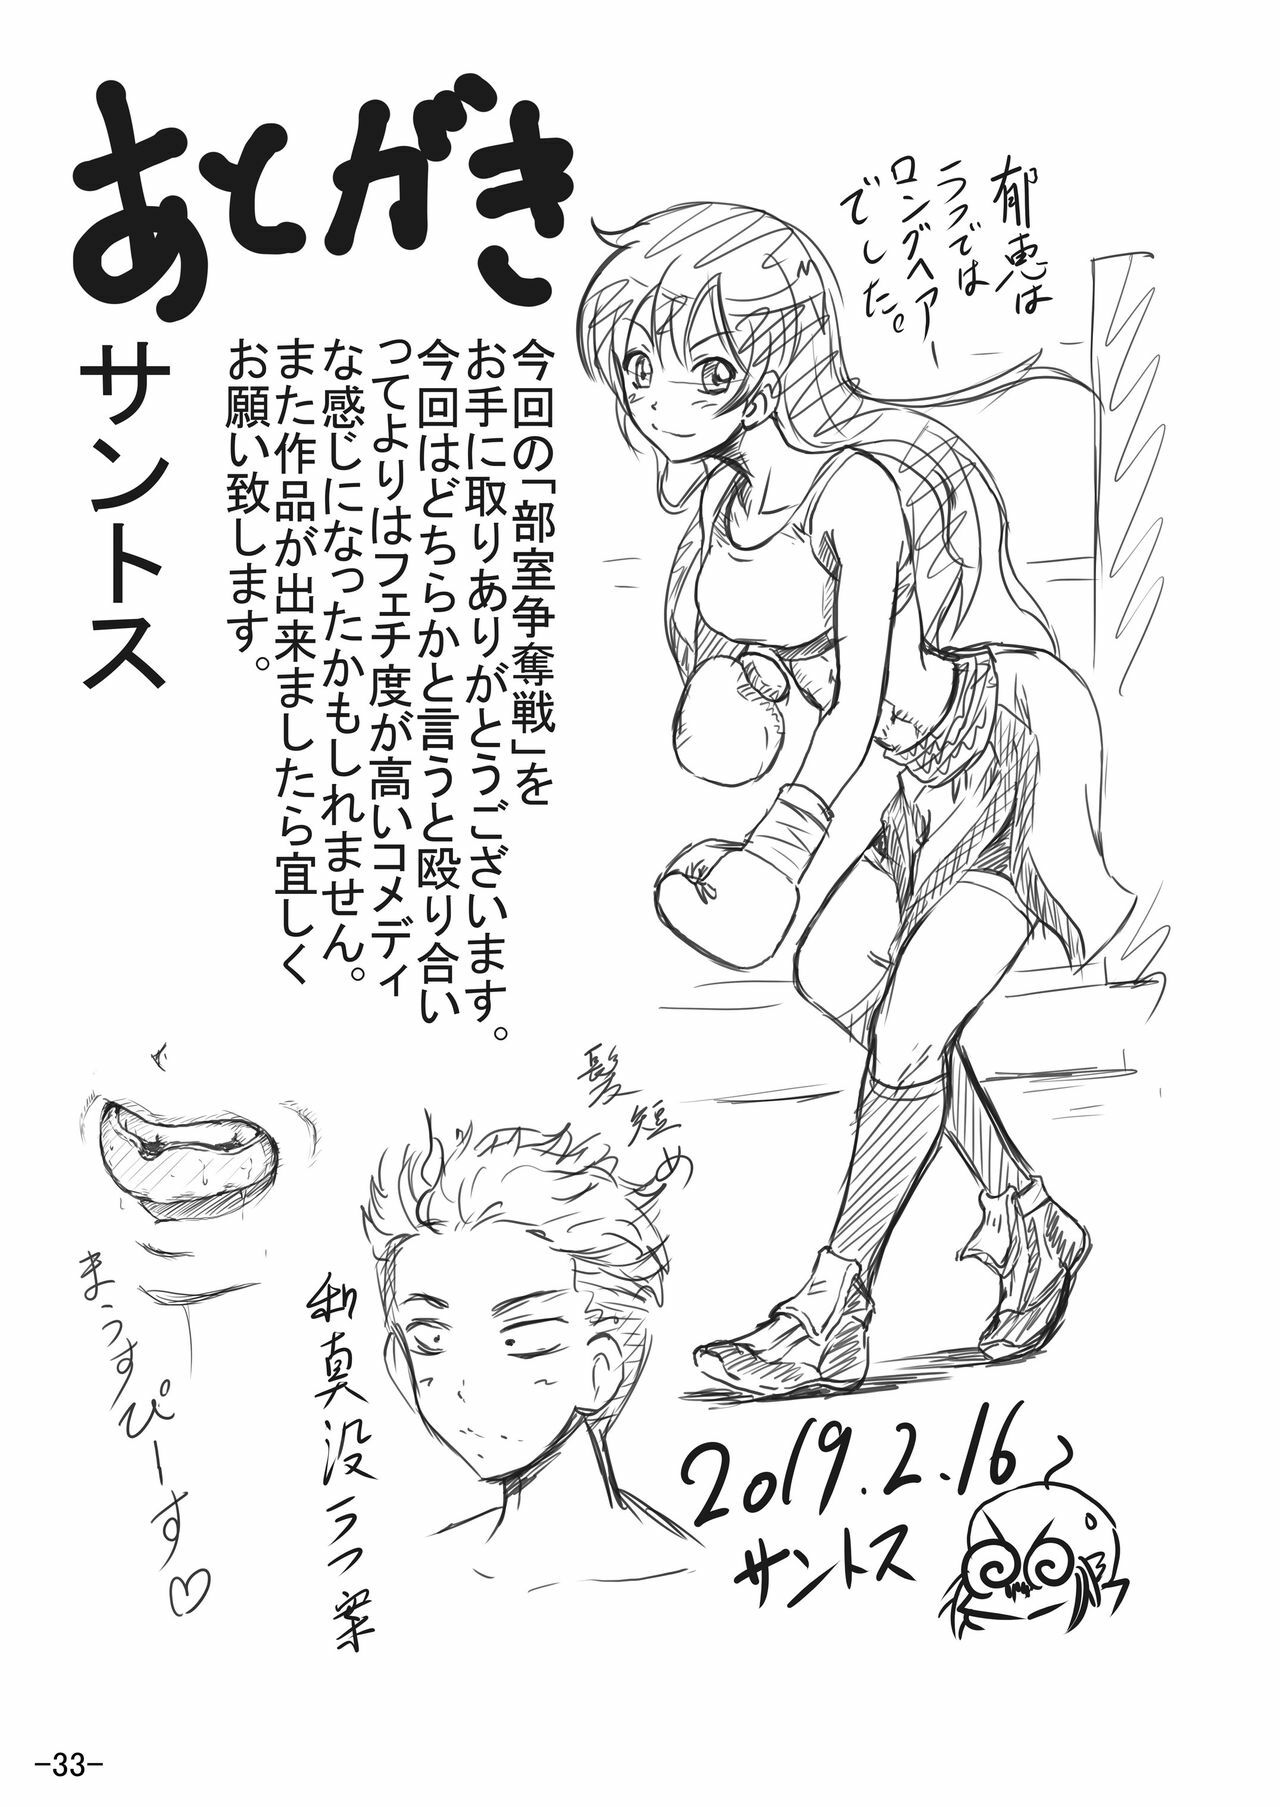 あとがき
サントス
今回の「部室争奪戦」を
お手に取りありがとうございます。
今回はどちらかと言うと殴り合い
ってよりはフェチ度が高いコメディ
な感じになったかもしれません。
また作品が出来ましたら宜しく
お願い致します。
郁恵は
ラフでは
ロングヘアー
でした。
髪短め
和真没ラフ案
まうすぴーす♡
2019.2.16
サントス
-33-